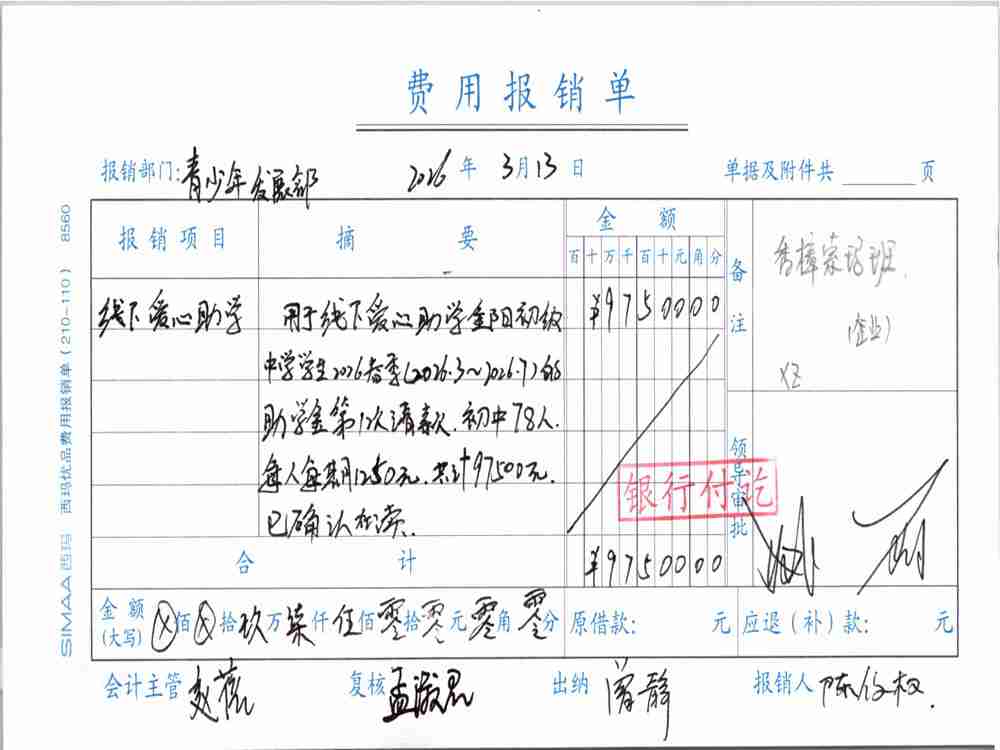 费用报销单
报销部门:青少年发展部 2026年3月13日 单据及附件共 页
报销项目 摘要 金额 备注
百十万千百十元角分
线下爱心助学 用于线下爱心助学金阳初级 ¥9750000
中学学生2026春季(2026.3~2026.7)的
助学金第1次请款.初中78人.
每人每期1250元.共计97500元.
已确认在读.
香樟
班.
(企业)
领导审批
银行付讫
合计 ¥9750000
金额(大写) ⊗佰⊗拾玖万柒仟伍佰零拾零元零角零分 原借款: 元 应退(补)款: 元
会计主管 赵 复核 孟 出纳 曾静 报销人 陈俊权.
SIMAA西玛 西玛优品费用报销单(210-110) 8560